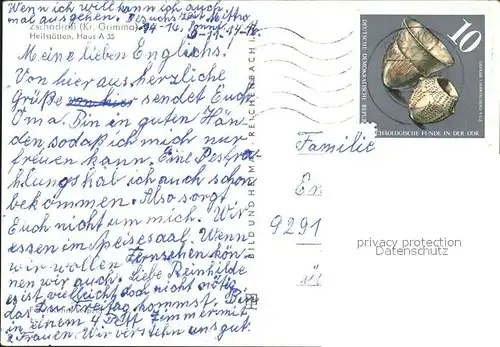 Wenn ich will kann ich auch
mal ausgehen. Besuchszeit Mittwo
14-16, Sonnt.
Zschadraß (Kr. Grimma)
Heilstätten, Haus A 35
Meine lieben Englichs!
Von hier aus herzliche
Grüße von hier sendet Euch
Oma. Bin in guten Hän
den sodaß ich mich nur
freuen kann. Eine Bestra
hlung hab ich auch schon
bekommen. Also sorgt
Euch nicht um mich. Wir
essen im Speisesaal. Wenn
wir wollen Fernsehen kön
nen wir auch. Liebe Reinhilde
es ist vielleicht doch nicht nötig
das Du Freitag kommst. Bin
in einem 4 Bett Zimmer mit
2 Frauen. Wir verstehn uns gut.
BILD UND HEIMAT REICHENBACH
10
DEUTSCHE DEMOKRATISCHE REPUBLIK
ARCHÄOLOGISCHE FUNDE IN DER DDR
Familie
En
9291
privacy protection
Datenschutz